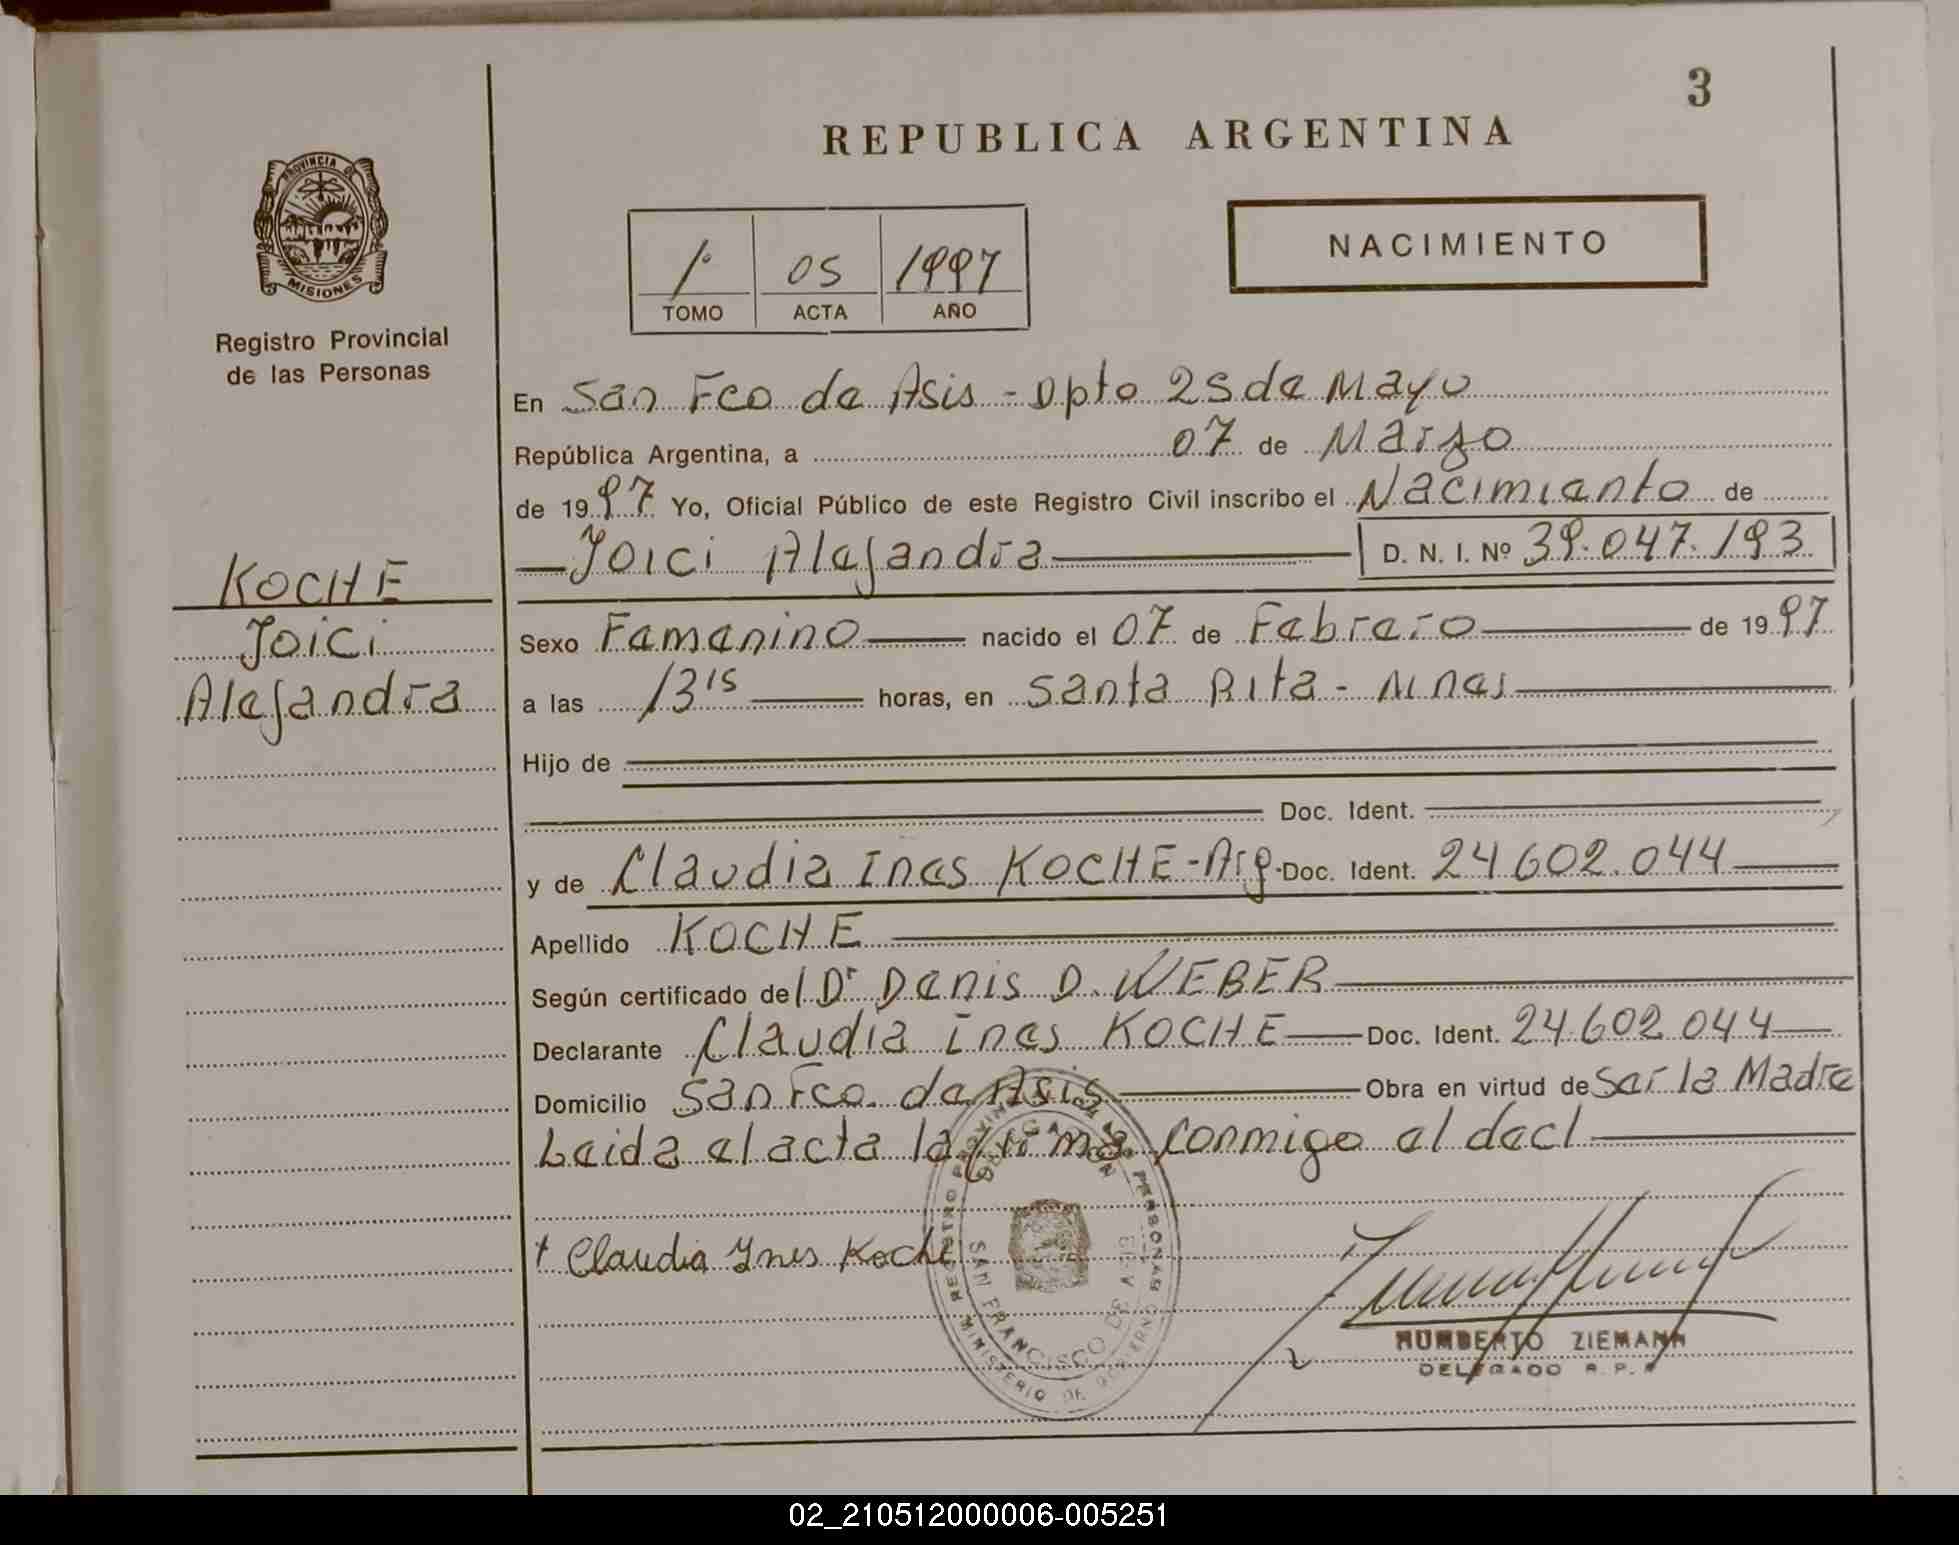 3
REPUBLICA ARGENTINA
PROVINCIA DE
MISIONES
Registro Provincial
de las Personas
1º 05 1997
TOMO ACTA AÑO
NACIMIENTO
En San Fco de Asis - Dpto 25 de Mayo
República Argentina, a 07 de Marzo
de 1997 Yo, Oficial Público de este Registro Civil inscribo el Nacimiento de
Joici Alejandra D. N. I. Nº 39.047.193
KOCHE
Joici
Alejandra
Sexo Femenino nacido el 07 de Febrero de 1997
a las 13 15 horas, en Santa Rita - Mnes
Hijo de
Doc. Ident.
y de Claudia Ines KOCHE - Arg. Doc. Ident. 24.602.044
Apellido KOCHE
Según certificado del Dr Denis D. WEBER
Declarante Claudia Ines KOCHE Doc. Ident. 24.602.044
Domicilio San Fco. de Asis Obra en virtud de Ser la Madre
Leida el acta la firma conmigo el decl
Claudia Ynes Koche
SAN FRANCISCO DE ASIS
MINISTERIO DE GOBIERNO
HUMBERTO ZIEMANN
DELEGADO R. P. P.
02_210512000006-005251